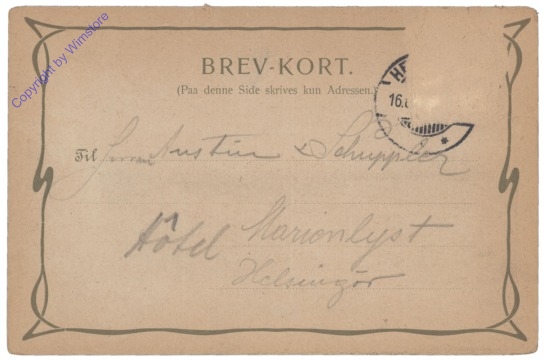 Copyright by Wimstore
BREV-KORT.
(Paa denne Side skrives kun Adressen.)
HE
16.
Til Herrn Austin v Schuppler
Hôtel Marionlyst
Helsingör